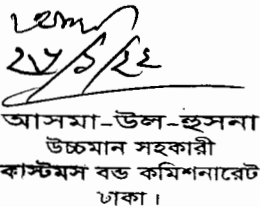 ২৮/১/২২
আসমা-উল-হুসনা
উচ্চমান সহকারী
কাস্টমস বন্ড কমিশনারেট
ঢাকা।